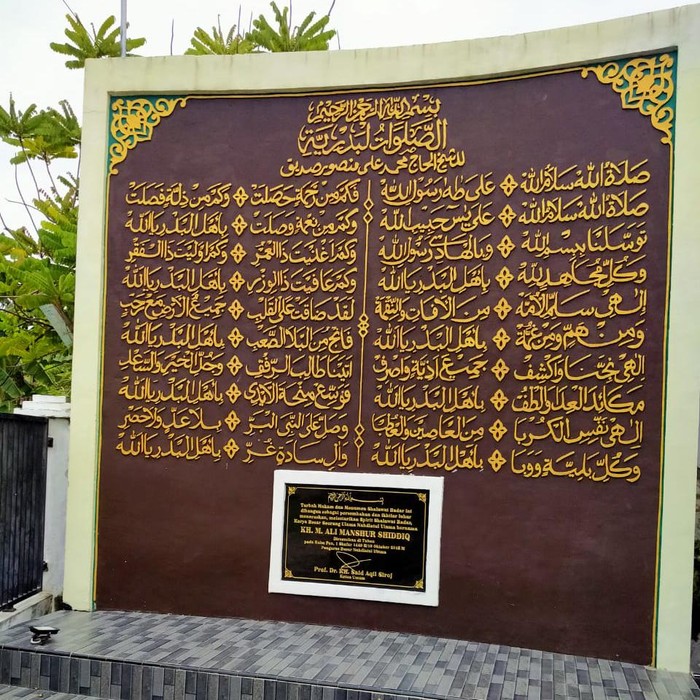 بسم الله الرحمن الرحيم
الصلوات البدرية
للشيخ الحاج محمد علي منصور صديق
صلاة الله سلام الله ❖ على طه رسول الله
صلاة الله سلام الله ❖ على يس حبيب الله
توسلنا ببسم الله ❖ وبالهادى رسول الله
وكل مجاهد لله ❖ باهل البدر يا الله
الهى سلم الامة ❖ من الافات والنقمة
ومن هم ومن غمة ❖ باهل البدر يا الله
الهى نجنا واكشف ❖ جميع اذية واصرف
مكائد العدا والطف ❖ باهل البدر يا الله
الهى نفس الكربا ❖ من العاصين والعطبا
وكل بلية ووبا ❖ باهل البدر يا الله
فكم من رحمة حصلت ❖ وكم من ذلة فصلت
وكم من نعمة وصلت ❖ باهل البدر يا الله
وكم اغنيت ذا العمر ❖ وكم اوليت ذا الفقر
وكم عافيت ذا الوزر ❖ باهل البدر يا الله
لقد ضاقت على القلب ❖ جميع الارض مع رحب
فانج من البلا الصعب ❖ باهل البدر يا الله
اتينا طالبى الرفق ❖ وجل الخير والسعد
فوسع منحة الايدى ❖ باهل البدر يا الله
وصل على النبى البر ❖ بلا عد ولا حصر
وال سادة غر ❖ باهل البدر يا الله
Turbah Makam dan Monumen Shalawat Badar ini
dibangun sebagai persembahan dan ikhtiar luhur
meneruskan, melestarikan Spirit Shalawat Badar,
Karya Besar Seorang Ulama Nahdlatul Ulama bernama
KH. M. ALI MANSHUR SHIDDIQ
Diresmikan di Tuban
Pengurus Besar Nahdlatul Ulama
Prof. Dr. KH. Said Aqil Siroj
Ketua Umum